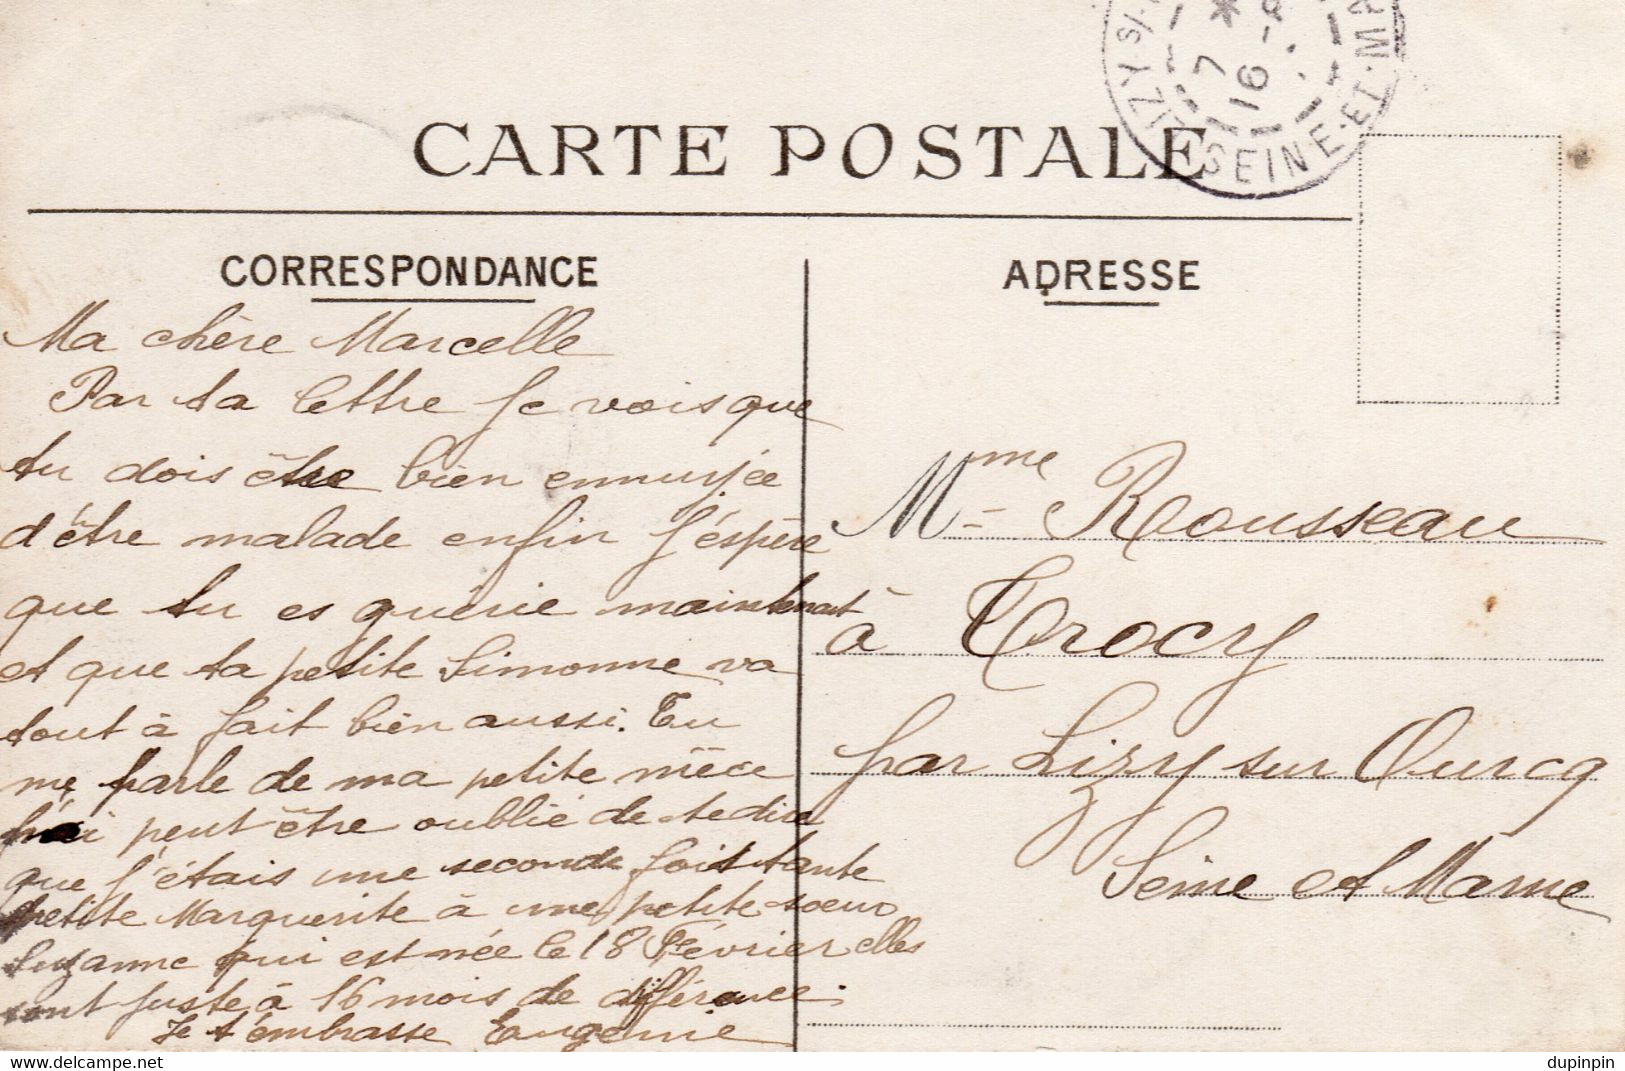 CARTE POSTALE
IZY S/
7
16
SEINE-ET-MA
CORRESPONDANCE
Ma chère Marcelle
Par ta lettre je vois que
tu dois être bien ennuyée
d'être malade enfin j'éspère
que tu es guérie maintenant
et que ta petite Simonne va
tout à fait bien aussi. Tu
me parle de ma petite nièce
j'ai peut être oublié de te dire
que j'étais une seconde fois tante
petite Marguerite à une petite soeur
Suzanne qui est née le 18 Février elles
sont juste à 16 mois de différence.
Je t'embrasse Eugenie
ADRESSE
Mme Rousseau
à Trocy
par Lizy sur Ourcq
Seine et Marne
delcampe.net
dupinpin